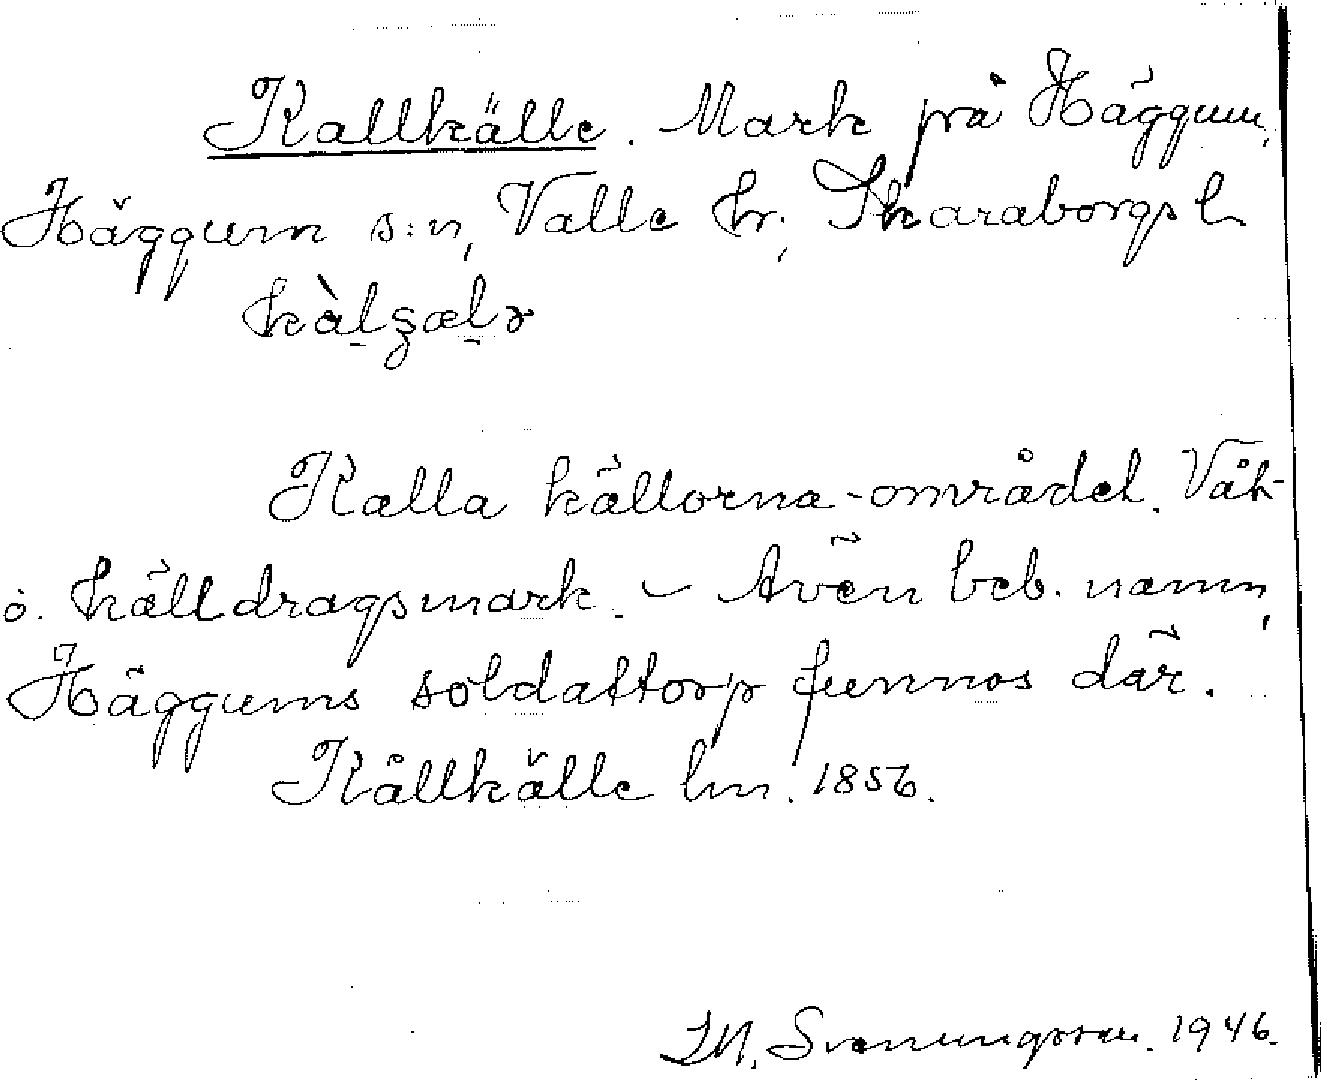 Kallkälle. Mark på Häggum,
Häggum s:n, Valle hr; Skaraborgs l.
kàlʒælɘ
Kalla källorna-området. Våt-
o. källdragsmark. - Även beb. namn,
Häggums soldattorp funnos där.
Kållkälle lm. 1856.
Svenungsson. 1946.